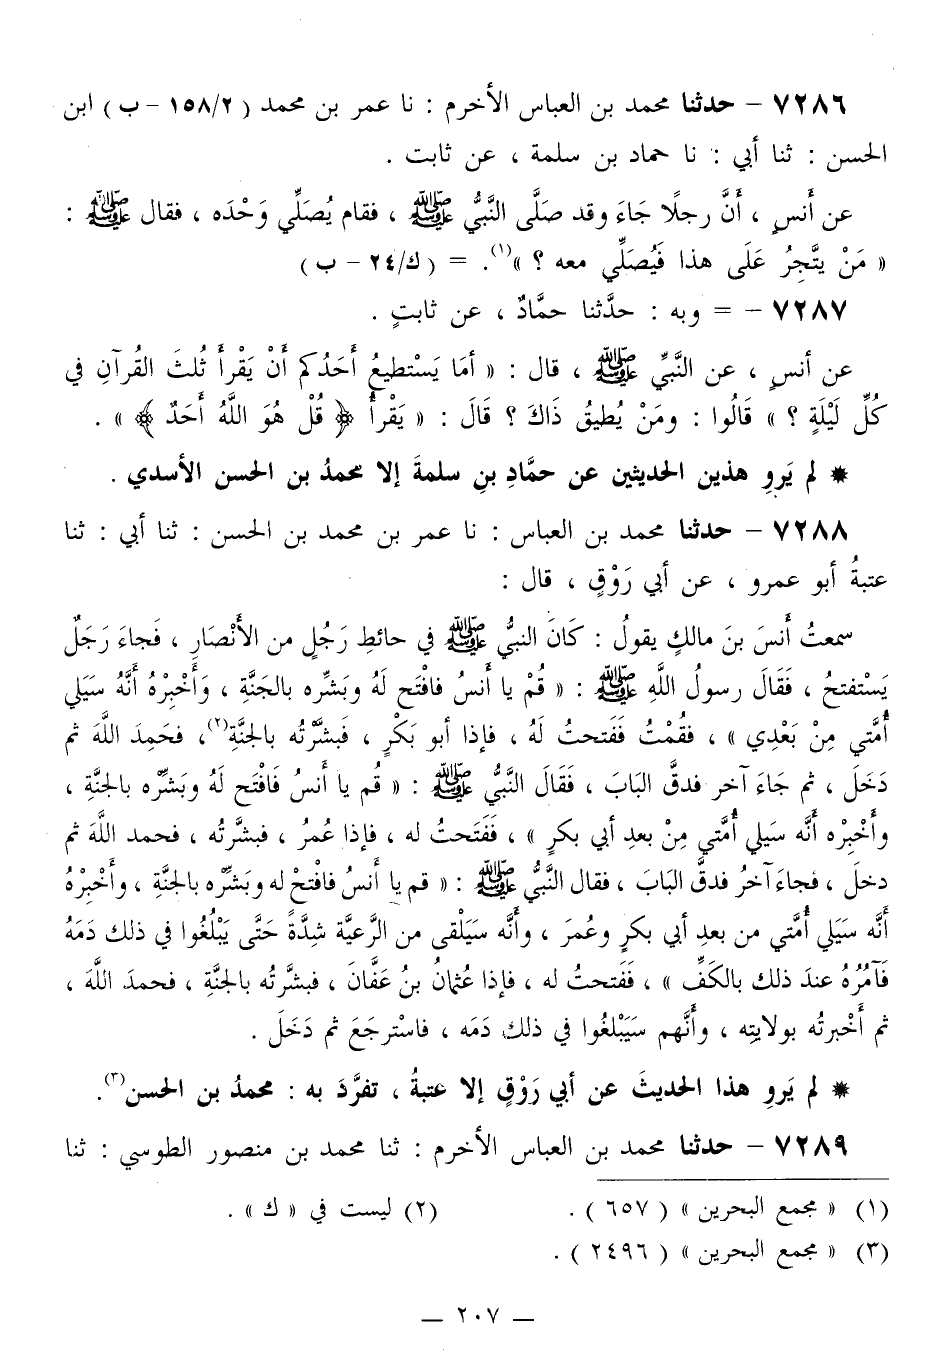 ٧٢٨٦ – حدثنا محمد بن العباس الأخرم : نا عمر بن محمد ( ١٥٨/٢ – ب ) ابن
الحسن : ثنا أبي : نا حماد بن سلمة ، عن ثابت .
عن أنسٍ ، أَنَّ رجلًا جَاءَ وقد صَلَّى النَّبيُّ ﷺ ، فقام يُصَلِّي وَحْدَه ، فقال ﷺ :
« مَنْ يتَّجِرُ عَلَى هذا فَيُصَلِّي معه ؟ »(١). = ( ك/٢٤ – ب )
٧٢٨٧ – = وبه : حدَّثنا حمَّادٌ ، عن ثابتٍ .
عن أنسٍ ، عن النَّبيِّ ﷺ ، قال : « أمَا يَسْتطيعُ أَحَدُكم أَنْ يَقْرأَ ثُلثَ القُرآنِ في
كُلِّ لَيْلَةٍ ؟ » قَالُوا : ومَنْ يُطيقُ ذَاكَ ؟ قَالَ : « يَقْرأُ ﴿ قُلْ هُوَ اللَّهُ أَحَدٌ ﴾ » .
* لم يَروِ هذين الحديثين عن حمَّادِ بنِ سلمةَ إلا محمدُ بن الحسن الأسدي .
٧٢٨٨ – حدثنا محمد بن العباس : نا عمر بن محمد بن الحسن : ثنا أبي : ثنا
عتبةُ أبو عمرو ، عن أبي رَوْقٍ ، قال :
سمعتُ أَنسَ بنَ مالكٍ يقولُ : كَانَ النبيُّ ﷺ في حائطِ رَجُلٍ من الأَنْصَارِ ، فَجاءَ رَجَلٌ
يَسْتفتحُ ، فَقَالَ رسولُ اللَّهِ ﷺ : « قُمْ يا أَنسُ فافْتَح لَهُ وبَشِّره بالجَنَّةِ ، وَأَخْبِرْهُ أَنَّهُ سَيَلي
أُمَّتي مِنْ بَعْدِي » ، فقُمْتُ فَفَتحتُ لَهُ ، فإذا أبو بَكْرٍ ، فَبشَّرْتُه بالجنَّةِ(٢)، فحَمِدَ اللَّهَ ثم
دَخَلَ ، ثم جَاءَ آخر فدقَّ البَابَ ، فَقَالَ النَّبيُّ ﷺ : « قُم يا أَنسُ فَافْتَح لَهُ وبَشِّره بالجنَّةِ ،
وأَخْبِرْه أنَّه سَيَلي أُمَّتي مِنْ بعدِ أبي بكرٍ » ، فَفَتَحتُ له ، فإذا عُمرُ ، فبشَّرتُه ، فحمد اللَّهَ ثم
دخلَ ، فجاءَ آخرُ فدقَّ البَابَ ، فقال النَّبيُّ ﷺ : « قم يا أَنسُ فافْتح له وبَشِّره بالجنَّةِ ، وأَخْبِرْهُ
أنَّه سَيَلي أُمَّتي من بعدِ أبي بكرٍ وعُمرَ ، وأنَّه سَيَلْقى من الرَّعيَّة شِدَّةً حَتَّى يَبْلُغُوا في ذلك دَمَهُ
فَآمُرُهُ عندَ ذلك بالكَفِّ » ، فَفَتحتُ له ، فإذا عُثمانُ بنُ عَفَّانَ ، فبشَّرتُه بالجنَّةِ ، فحمدَ اللَّهَ ،
ثم أَخْبرتُه بولايتِه ، وأنَّهم سَيَبْلغُوا في ذلك دَمَه ، فاسْترجَعَ ثم دَخَلَ .
* لم يَروِ هذا الحديثَ عن أبي رَوْقٍ إلا عتبةُ ، تفرَّدَ به : محمدُ بن الحسن(٣).
٧٢٨٩ – حدثنا محمد بن العباس الأخرم : ثنا محمد بن منصور الطوسي : ثنا
(١) « مجمع البحرين » ( ٦٥٧ ) . (٢) ليست في « ك » .
(٣) « مجمع البحرين » ( ٢٤٩٦ ) .
— ٢٠٧ —